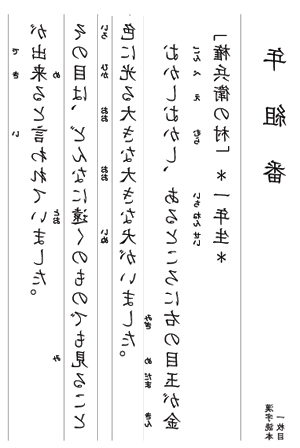 年 組 番
「権兵衛の村」*一年生*
ごんべえ むら いちねんせい
むかしむかし、あるところに右の目玉が金
みぎ めだま きん
色に光る大きな大きな犬がいました。
いろ ひか おお おお いぬ
その目は、どんなに遠くのものでも見ること
め とお み
が出来ると言われていました。
でき い
一枚目
漢字読本